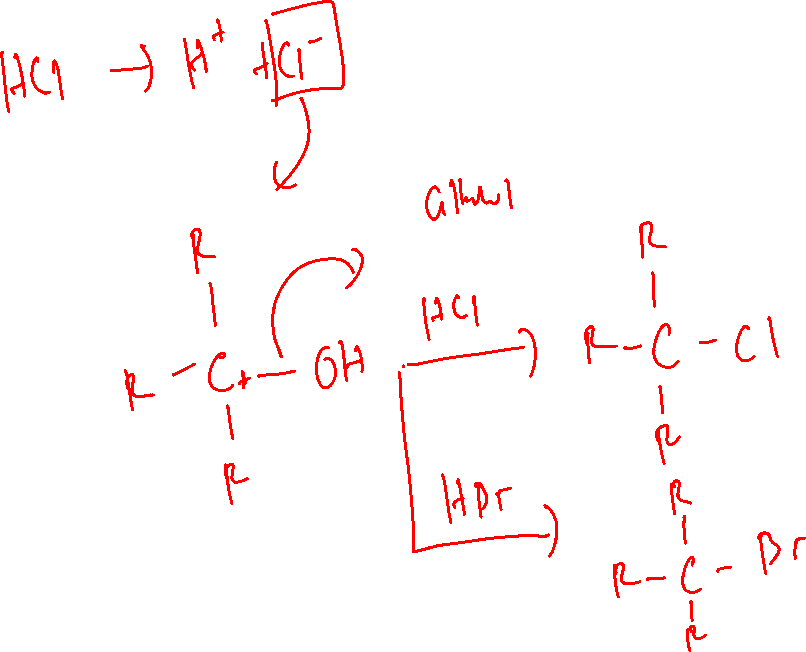 HCl → H⁺ + Cl⁻
R
R - C+ - OH
R
HCl
R
R - C - Cl
R
HBr
R
R - C - Br
R